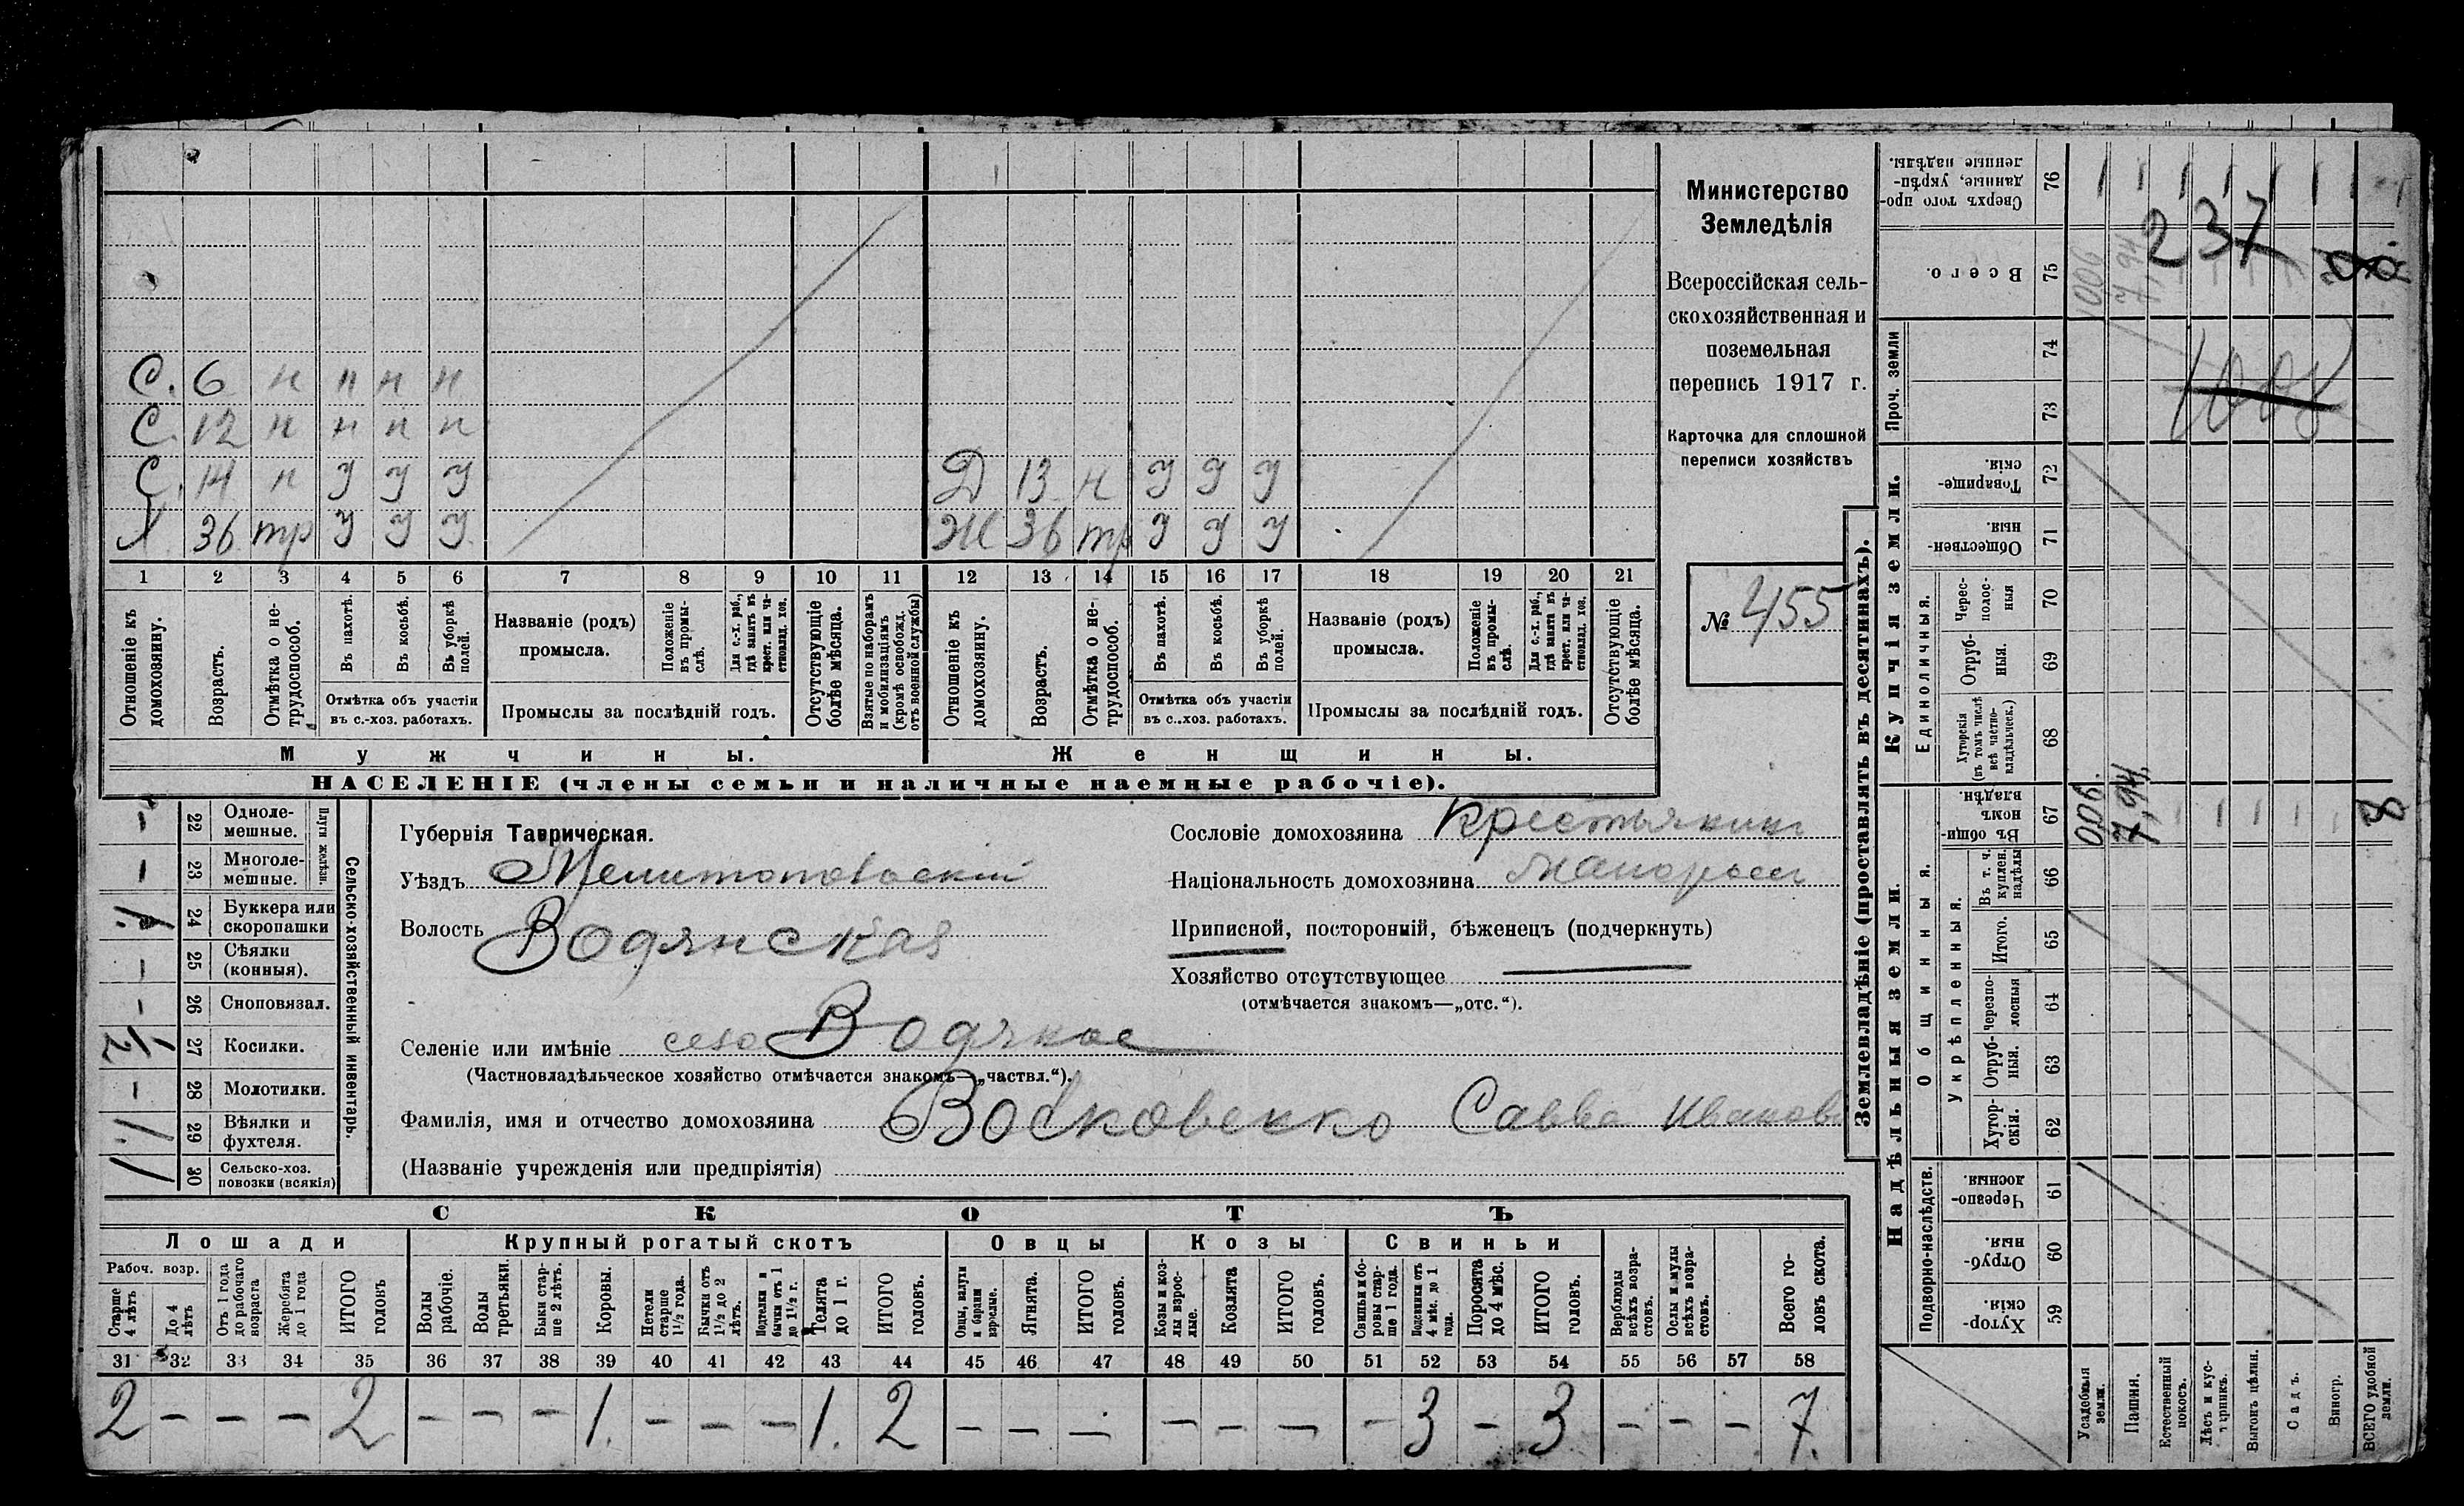 С. 6 н н н н
С. 12 н н н н
С. 14 н У У У Д 13 н У У У
Х 36 тр У У У Ж 36 тр У У У
1 2 3 4 5 6 7 8 9 10 11 12 13 14 15 16 17 18 19 20 21
Отношеніе къ домохозяину.
Возрастъ.
Отмѣтка о нетрудоспособ.
Въ пахотѣ.
Въ косьбѣ.
Въ уборкѣ полей.
Отмѣтка объ участіи
въ с.-хоз. работахъ.
Названіе (родъ)
промысла.
Положеніе въ промыслѣ.
Для с.-х. раб., гдѣ занятъ въ крест. или частновлад. хоз.
Промыслы за послѣдній годъ.
Отсутствующіе болѣе мѣсяца.
Взятые по наборамъ и мобилизаціямъ (кромѣ освобожд. отъ военной службы)
Отношеніе къ домохозяину.
Возрастъ.
Отмѣтка о нетрудоспособ.
Въ пахотѣ.
Въ косьбѣ.
Въ уборкѣ полей.
Отмѣтка объ участіи
въ с.-хоз. работахъ.
Названіе (родъ)
промысла.
Положеніе въ промыслѣ.
Для с.-х. раб., гдѣ занята въ крест. или частновлад. хоз.
Промыслы за послѣдній годъ.
Отсутствующіе болѣе мѣсяца.
Мужчины. Женщины.
НАСЕЛЕНІЕ (члены семьи и наличные наемные рабочіе).
Министерство
Земледѣлія
Всероссійская сель-
скохозяйственная и
поземельная
перепись 1917 г.
Карточка для сплошной
переписи хозяйствъ
№ 455
Сельско-хозяйственный инвентарь.
Плуги желѣзн.
– 22 Одноле-
мешные.
– 23 Многоле-
мешные.
1. 24 Буккера или
скоропашки
– 25 Сѣялки
(конныя).
– 26 Сноповязал.
1/2 27 Косилки.
– 28 Молотилки.
1. 29 Вѣялки и
фухтеля.
1 30 Сельско-хоз.
повозки (всякія)
Губернія Таврическая.
Уѣздъ Мелитопольскій
Волость Водянская
Селеніе или имѣніе село Водяное
(Частновладѣльческое хозяйство отмѣчается знакомъ—„частвл.“).
Фамилія, имя и отчество домохозяина Вовковенко Савва Иванов
(Названіе учрежденія или предпріятія)
Сословіе домохозяина Крестьянин
Національность домохозяина малоросс
Приписной, посторонній, бѣженецъ (подчеркнуть)
Хозяйство отсутствующее
(отмѣчается знакомъ—„отс.“).
СКОТЪ
Лошади Крупный рогатый скотъ Овцы Козы Свиньи
Рабоч. возр.
Старше 4 лѣтъ
До 4 лѣтъ
Отъ 1 года до рабочаго возраста
Жеребята до 1 года
ИТОГО головъ
Волы рабочіе.
Волы третьяки.
Быки старше 2 лѣтъ.
Коровы.
Нетели старше 1½ года.
Бычки отъ 1½ до 2 лѣтъ.
Подтелки и бычки отъ 1 до 1½ г.
Телята до 1 г.
ИТОГО головъ.
Овцы, валухи и бараны взрослые.
Ягнята.
ИТОГО головъ.
Козы и козлы взрослые.
Козлята
ИТОГО головъ.
Свиньи и боровы старше 1 года.
Подсвинки отъ 4 мѣс. до 1 года.
Поросята до 4 мѣс.
ИТОГО головъ.
Верблюды всѣхъ возрастовъ.
Ослы и мулы всѣхъ возрастовъ.
Всего головъ скота.
31 32 33 34 35 36 37 38 39 40 41 42 43 44 45 46 47 48 49 50 51 52 53 54 55 56 57 58
2 – – – 2 – – – 1. – – – 1. 2 – – – – – – – 3 – 3 – – – 7.
Землевладѣніе (проставлять въ десятинахъ).
Сверхъ того проданные, укрѣпленные надѣлы. 76
Всего. 75 006 7,94
237
Проч. земли 74 73
1008
Купчія земли.
Товарищескія. 72
Общественныя 71
Единоличныя.
Чересполосныя 70
Отрубныя. 69
Хуторскія (въ томъ числѣ всѣ частновладѣльческ.) 68
Надѣльныя земли.
Общинныя.
Въ общинномъ владѣн. 67 006. 7,94. 8
Укрѣпленныя.
Въ т. ч. куплен. надѣлы 66
Итого. 65
Черезполосныя 64
Отрубныя. 63
Хуторскія. 62
Подворно-наслѣдств.
Черезполосныя 61
Отрубныя 60
Хуторскія 59
Усадебныя земли.
Пашня.
Естественный покосъ.
Лѣсъ и кустарникъ.
Выгонъ цѣлин.
Садъ.
Виногр.
ВСЕГО удобной земли.